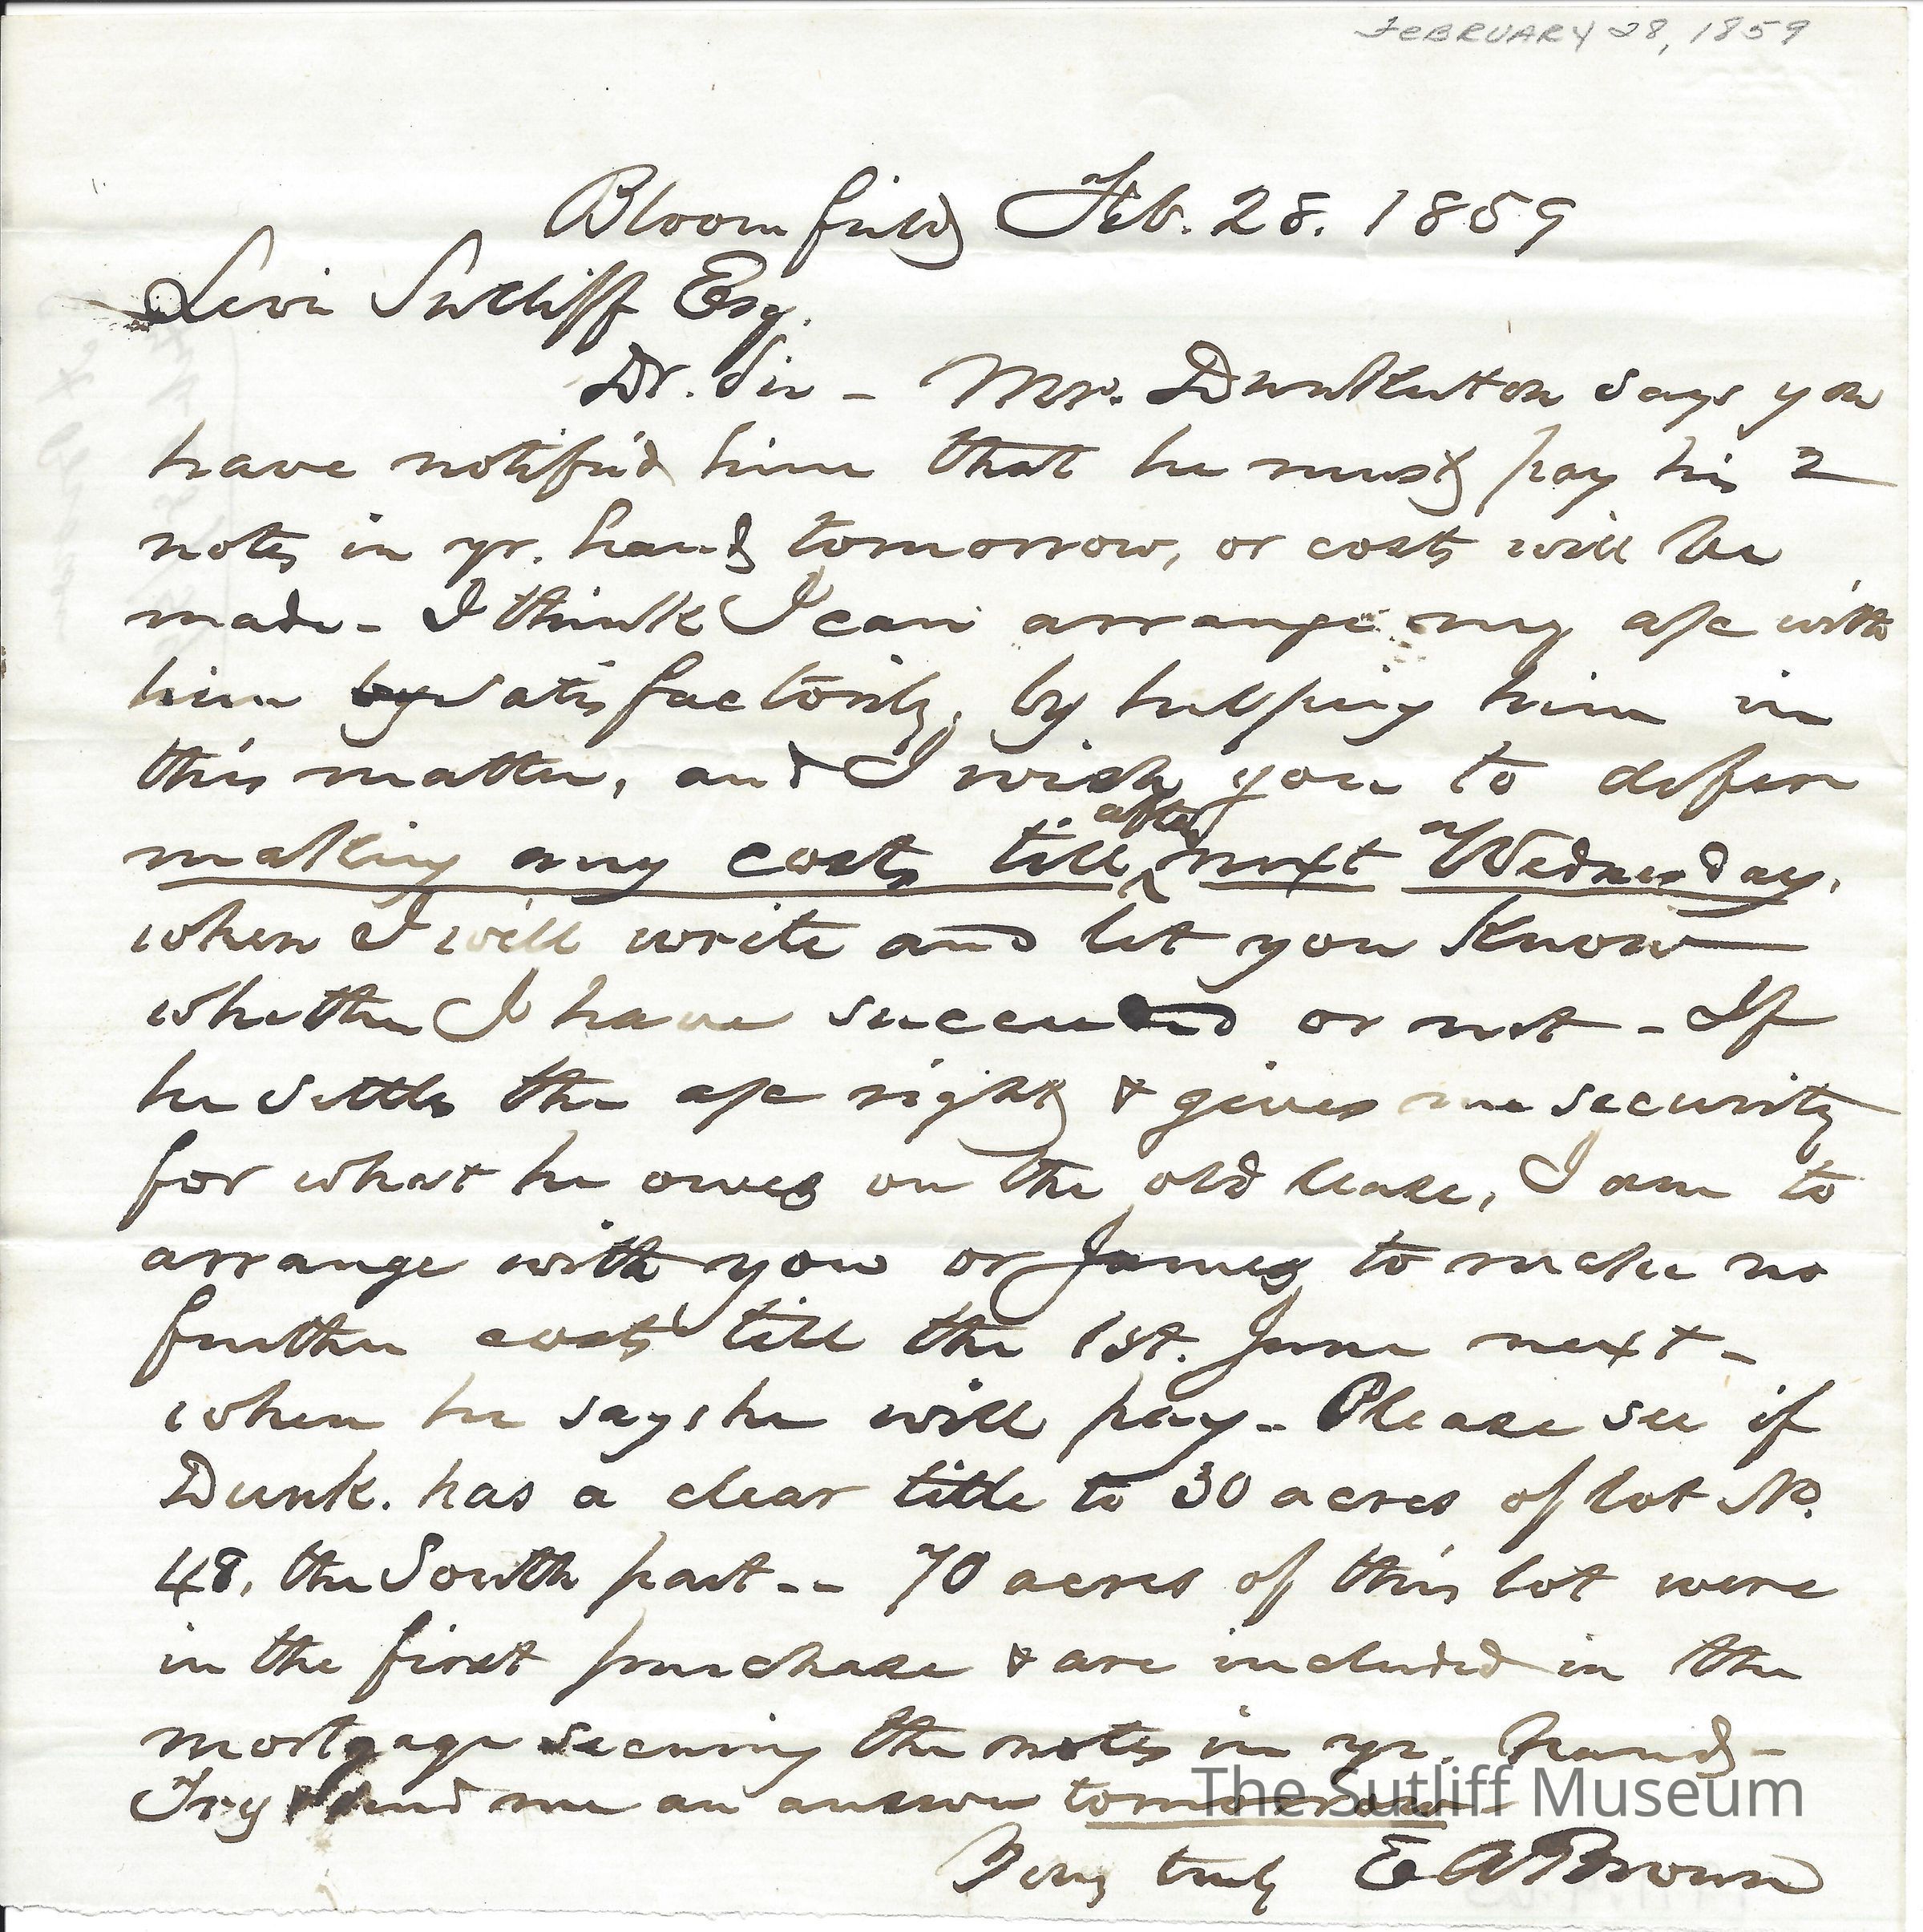 FEBRUARY 28, 1859
Bloomfield Feb. 28. 1859
Levi Sutcliff Esq.
Dr. Sir - Mr. Dunkleton says you
have notifi'd him that he must pay his 2
notes in yr. hands tomorrow, or costs will be
made - I think I can arrange my a/c with
him by satisfactorily, by helping him in
this matter, and I wish you to defer
making any costs till after next Wednesday,
when I will write and let you know
whether I have succeeded or not - If
he settles the a/c right & gives me security
for what he owes on the old lease, I am to
arrange with you or James to make no
further costs till the 1st. June next -
when he says he will pay - Please see if
Dunk. has a clear title to 30 acres of lot No.
48, the South part -- 70 acres of this lot were
in the first purchase & are included in the
mortgage securing the notes in yr. hands -
Try & send me an answer tomorrow -
Very truly E A Brown
The Sutliff Museum